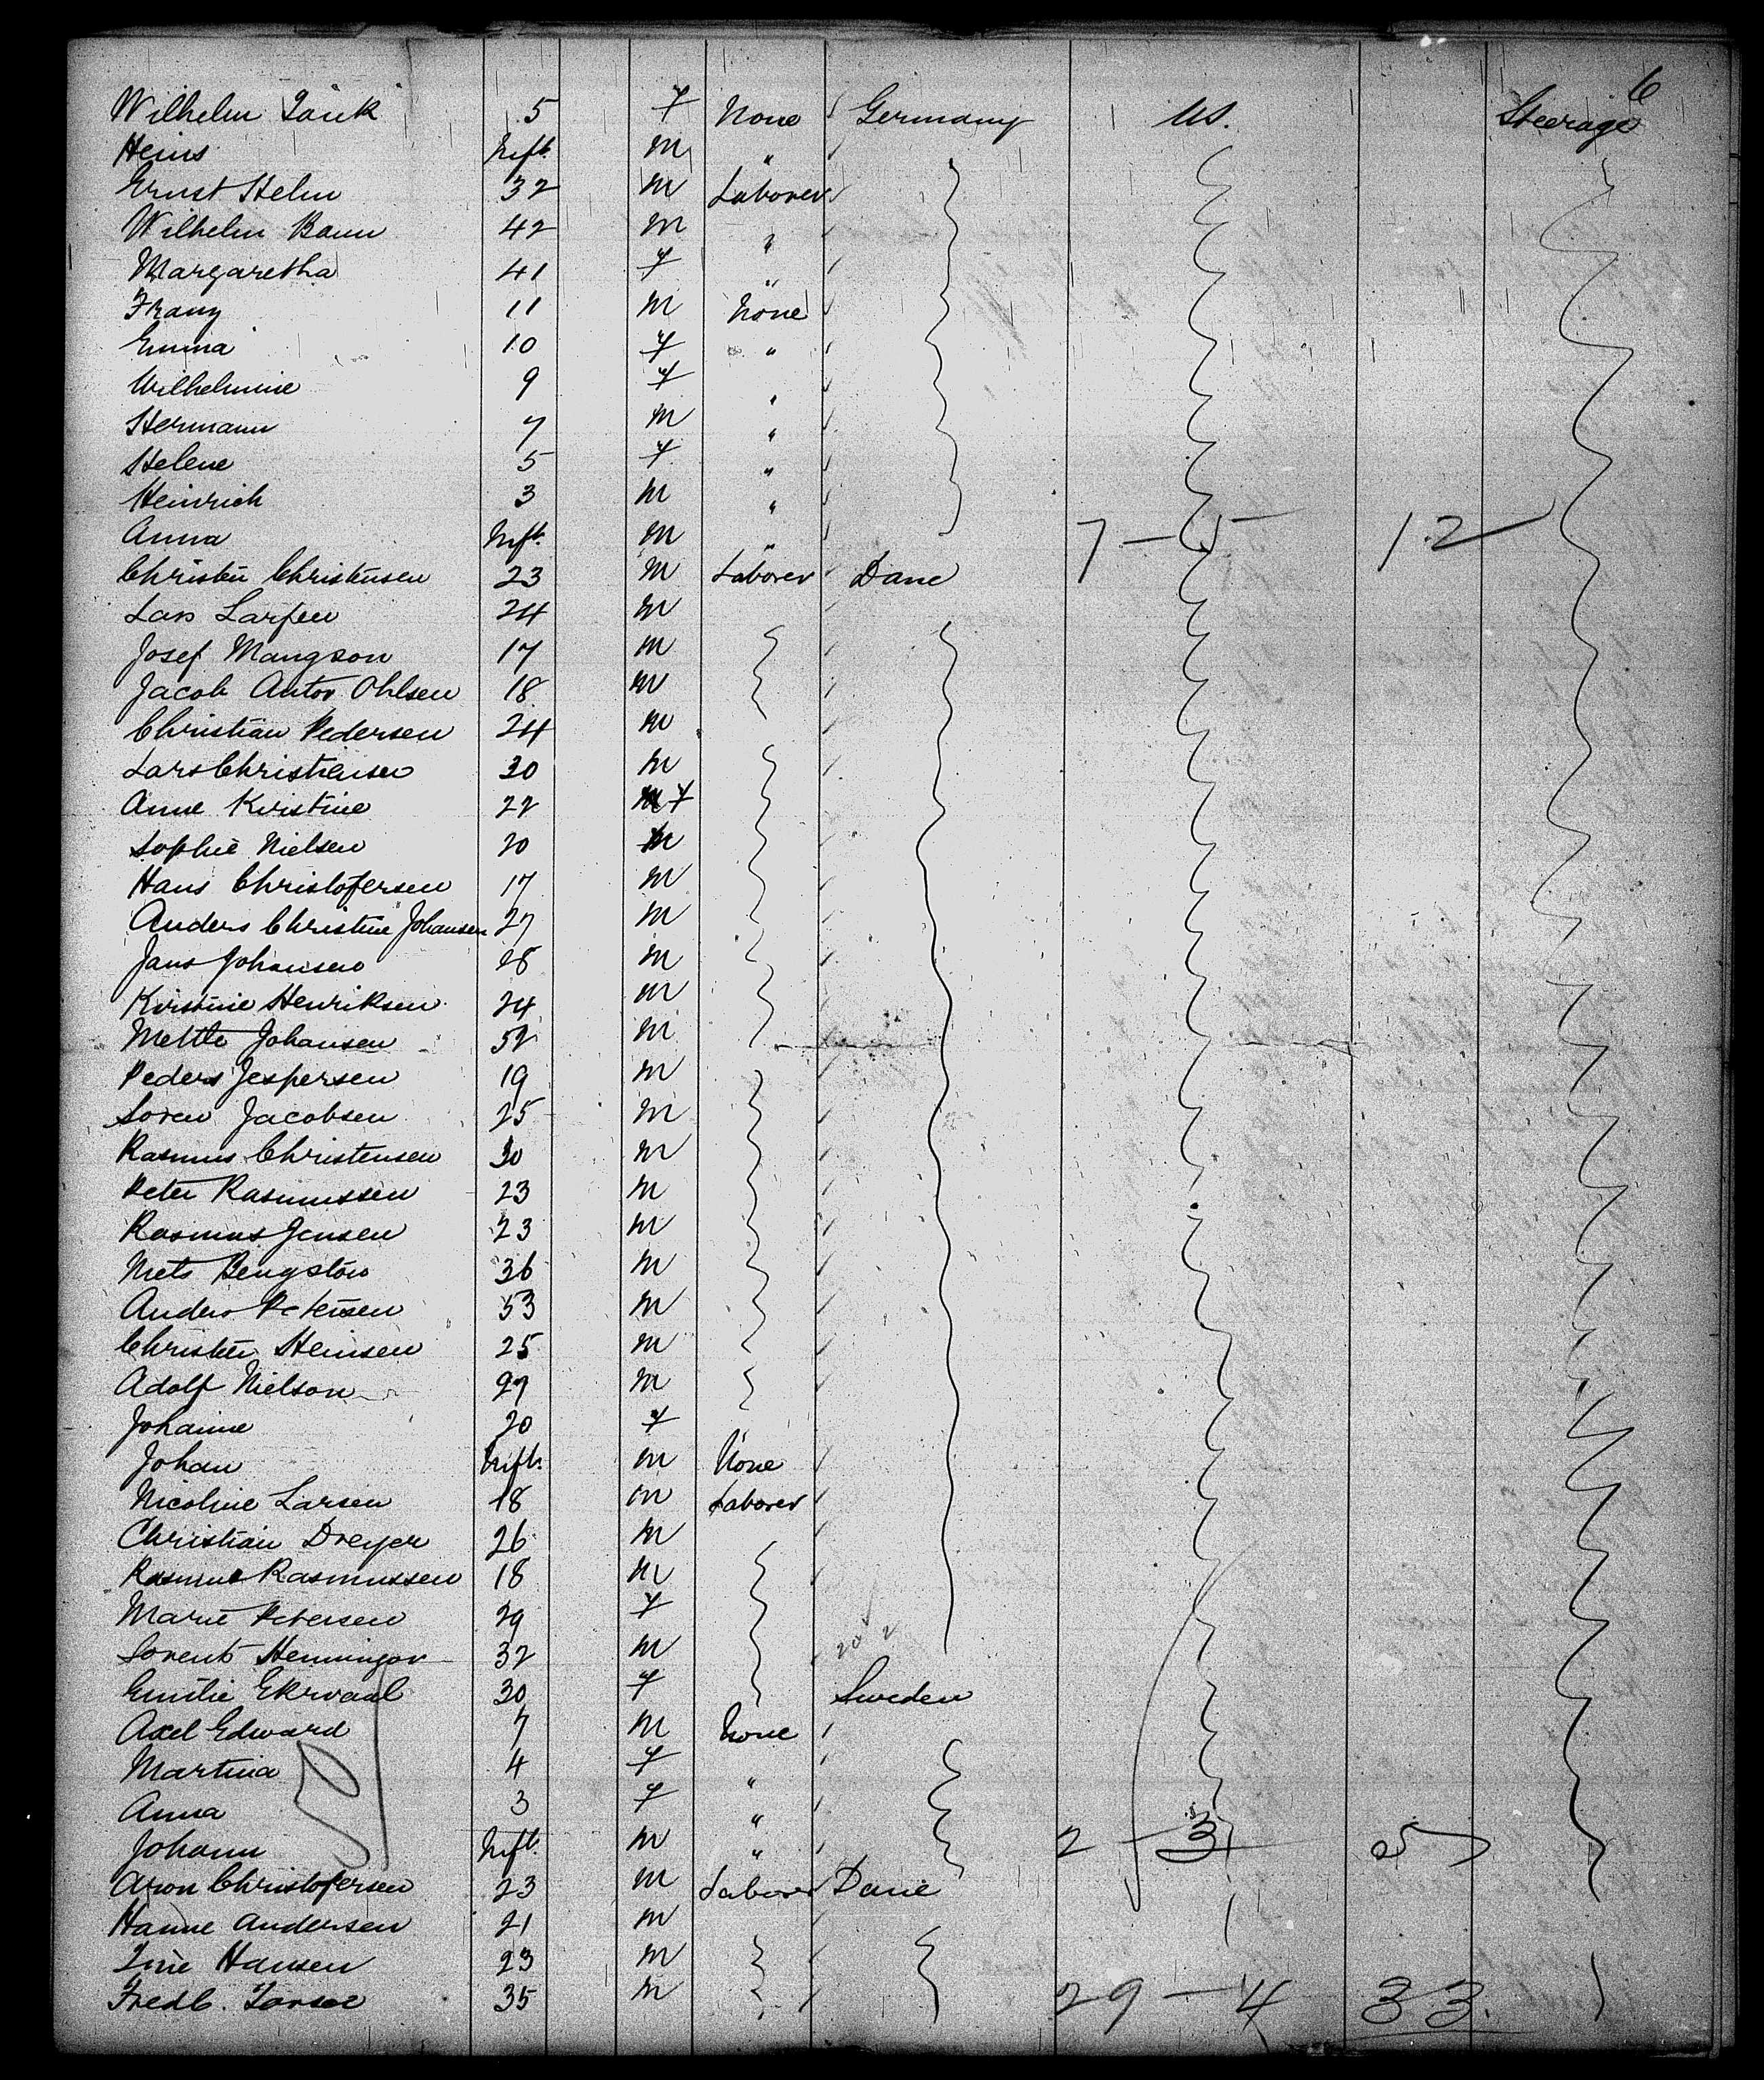 6
Wilhelm Jank 5 f None Germany US. Steerage
Heins Inft. M "
Ernst Helm 32 M Laborer
Wilhelm Baun 42 M "
Margaretha 41 f "
Franz 11 M None
Emma 10 f "
Wilhelmine 9 f "
Hermann 7 M "
Helene 5 f "
Heinrich 3 M "
Anna Inft. M " 7 - 5 12
Christen Christensen 23 M Laborer Dane
Lars Larsen 24 M
Josef Mangson 17 M
Jacob Anton Ohlsen 18 M
Christian Pedersen 24 M
Lars Christensen 30 M
Anne Kristine 22 f
Sophie Nielsen 20 M
Hans Christofersen 17 M
Anders Christine Johansen 27 M
Jans Johansen 28 M
Kirstine Henriksen 24 M
Mette Johansen 52 M
Peders Jespersen 19 M
Soren Jacobsen 25 M
Rasmus Christensen 30 M
Peter Rasmussen 23 M
Rasmus Jensen 23 M
Niels 36 M
Anders Petersen 53 M
Christen Heinsen 25 M
Adolf Nielson 27 M
Johanne 20 f
Johan Inft. M None
Nicoline Larsen 18 M Laborer
Christian Dreyer 26 M
Rasmus Rasmussen 18 M
Marie Petersen 29 f
Henningor 32 M 20 2
Emilie Ekrvaal 30 f Sweden
Axel Edward 7 M None
Martina 4 f "
Anna 3 f "
Johann Inft. M " 2 - 3 5
Aron Christofersen 23 M Laborer Dane
Hanne Andersen 21 M
Line Hansen 23 M
Fredk. 35 M 29 - 4 33.